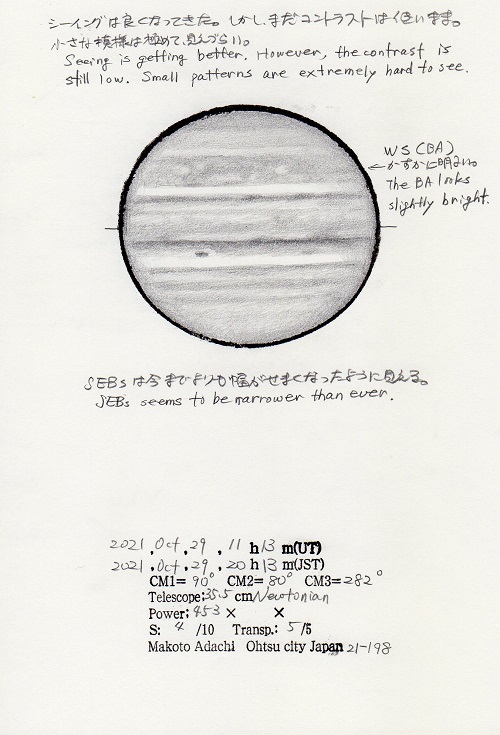 シーイングは良くなってきた。しかし、まだコントラストは低いまま。
小さな模様は極めて、見えづらい。
Seeing is getting better. However, the contrast is
still low. Small patterns are extremely hard to see.
WS (BA)
←かすかに明るい。
The BA looks
slightly bright.
SEBsは今までよりも幅がせまくなったように見える。
SEBs seems to be narrower than ever.
2021, Oct, 29, 11 h 13 m(UT)
2021, Oct, 29, 20 h 13 m(JST)
CM1= 90° CM2= 80° CM3= 282°
Telescope; 35.5 cm Newtonian
Power; 453 × ×
S: 4 /10 Transp.: 5 /5
Makoto Adachi Ohtsu city Japan 21-198